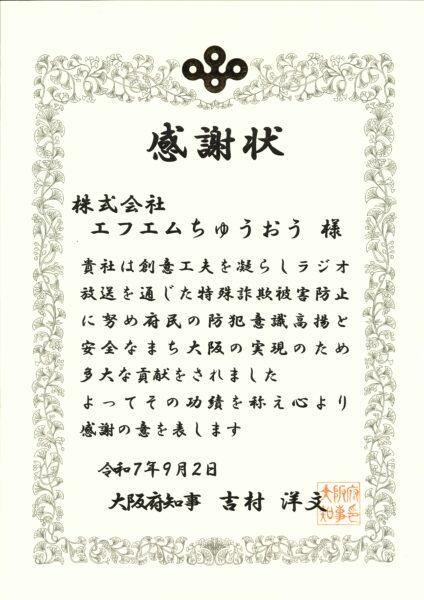 感謝状
株式会社
エフエムちゅうおう 様
貴社は創意工夫を凝らしラジオ
放送を通じた特殊詐欺被害防止
に努め府民の防犯意識高揚と
安全なまち大阪の実現のため
多大な貢献をされました
よってその功績を称え心より
感謝の意を表します
令和7年9月2日
大阪府知事 吉村 洋文
大阪府
知事印